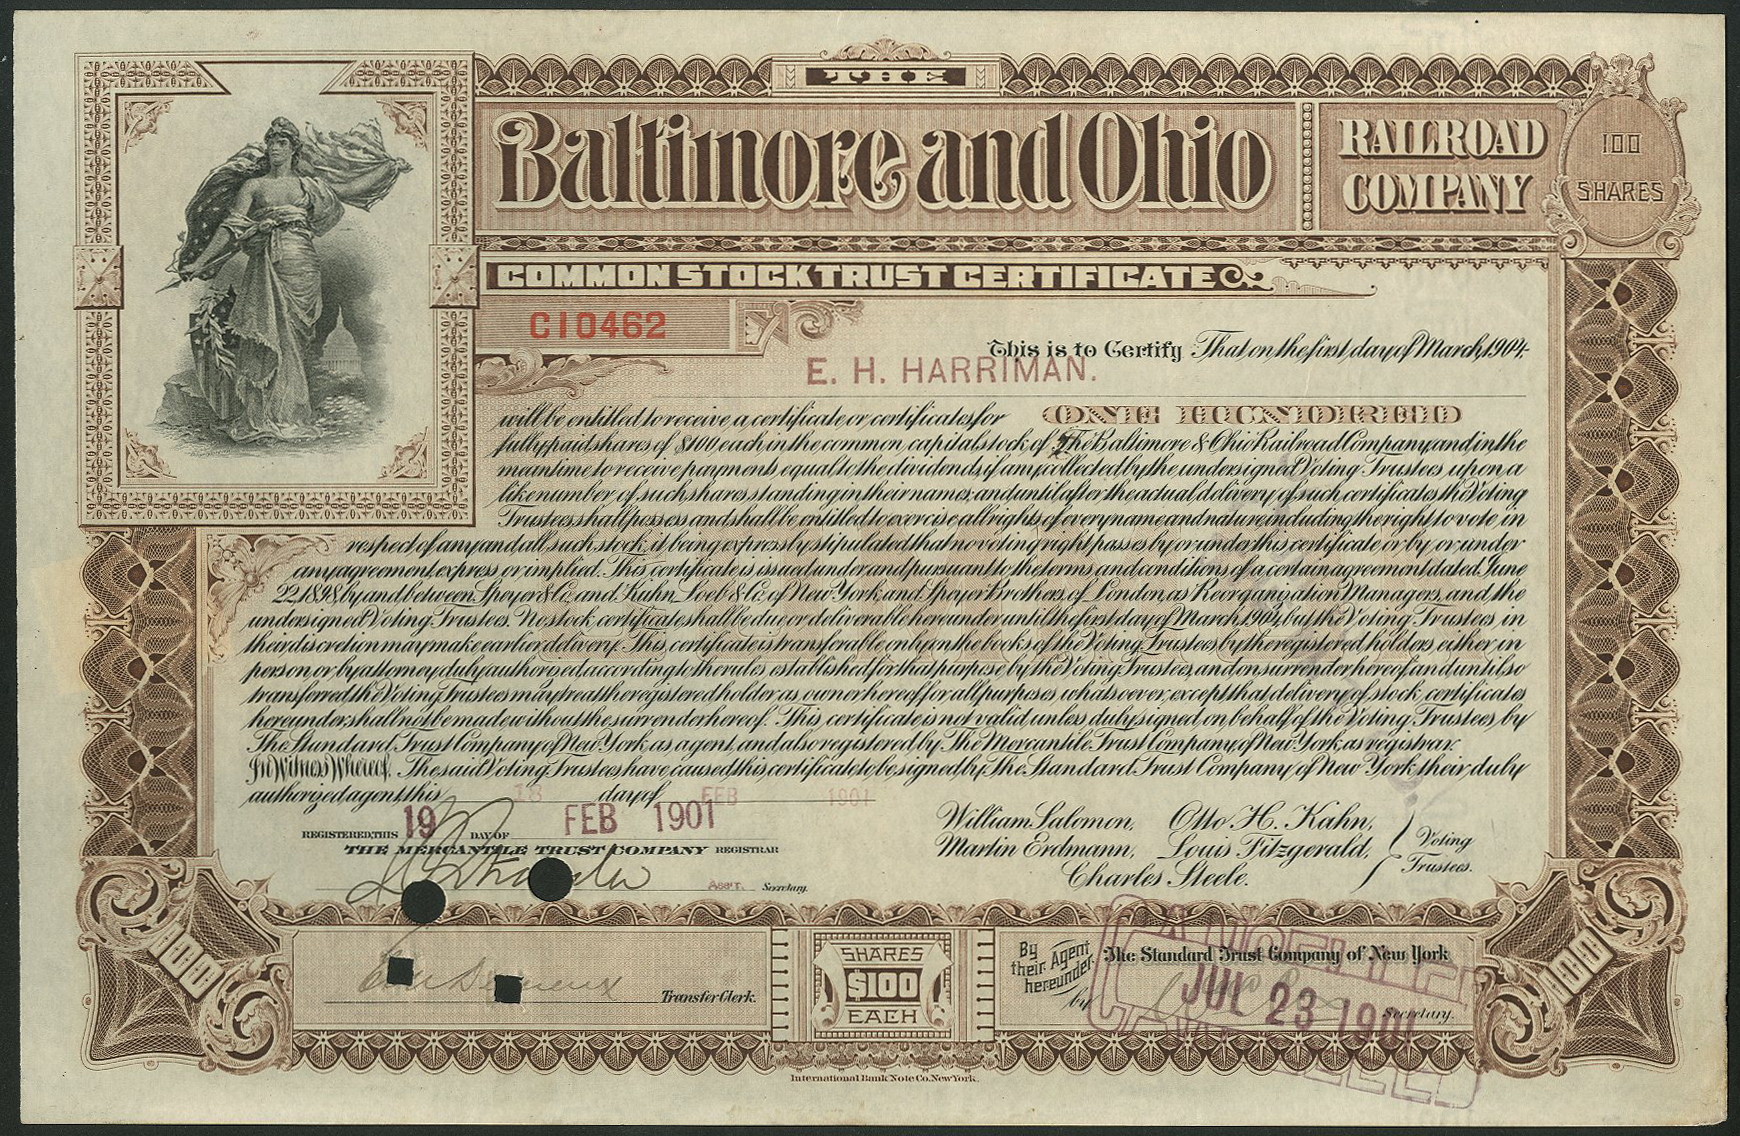 THE
Baltimore and Ohio
RAILROAD
COMPANY
100
SHARES
COMMON STOCK TRUST CERTIFICATE
C10462
This is to Certify That on the first day of March, 1904,
E. H. HARRIMAN.
will be entitled to receive a certificate or certificates for ONE HUNDRED
fully paid shares of $100 each in the common capital stock of The Baltimore & Ohio Railroad Company and in the
meantime to receive payments equal to the dividends, if any collected by the undersigned Voting Trustees upon a
like number of such shares standing in their names; and until after the actual delivery of such certificates the Voting
Trustees shall possess and shall be entitled to exercise all rights of every name and nature including the right to vote, in
respect of any and all such stock, it being expressly stipulated that no voting right passes by or under this certificate or by or under
any agreement, express or implied. This certificate is issued under and pursuant to the terms and conditions of a certain agreement dated June
22, 1898, by and between Speyer & Co., and Kuhn, Loeb & Co., of New York and Speyer Brothers, of London, as Reorganization Managers, and the
undersigned Voting Trustees. No stock certificate shall be due or deliverable hereunder until the first day of March, 1904, but the Voting Trustees in
their discretion may make earlier delivery. This certificate is transferable only on the books of the Voting Trustees by the registered holders either, in
person, or, by attorney duly authorized, according to the rules established for that purpose by the Voting Trustees, and on surrender hereof and until so
transferred, the Voting Trustees may treat the registered holder as owner hereof for all purposes whatsoever, except that delivery of stock certificates
hereunder, shall not be made without the surrender hereof. This certificate is not valid unless duly signed on behalf of the Voting Trustees, by
The Standard Trust Company of New York, as agent, and also registered by The Mercantile Trust Company of New York, as registrar.
In Witness Whereof, The said Voting Trustees have caused this certificate to be signed by The Standard Trust Company of New York, their duly
authorized agent, this 18 day of FEB 1901
REGISTERED, THIS 19 DAY OF FEB 1901
THE MERCANTILE TRUST COMPANY REGISTRAR
ASST. Secretary.
William Salomon, Otto H. Kahn,
Martin Erdmann, Louis Fitzgerald,
Charles Steele.
Voting
Trustees.
100
Transfer Clerk.
SHARES
$100
EACH
By
their Agent
hereunder
by
The Standard Trust Company of New York
Secretary.
CANCELLED
JUL 23 1901
100
International Bank Note Co. New York.